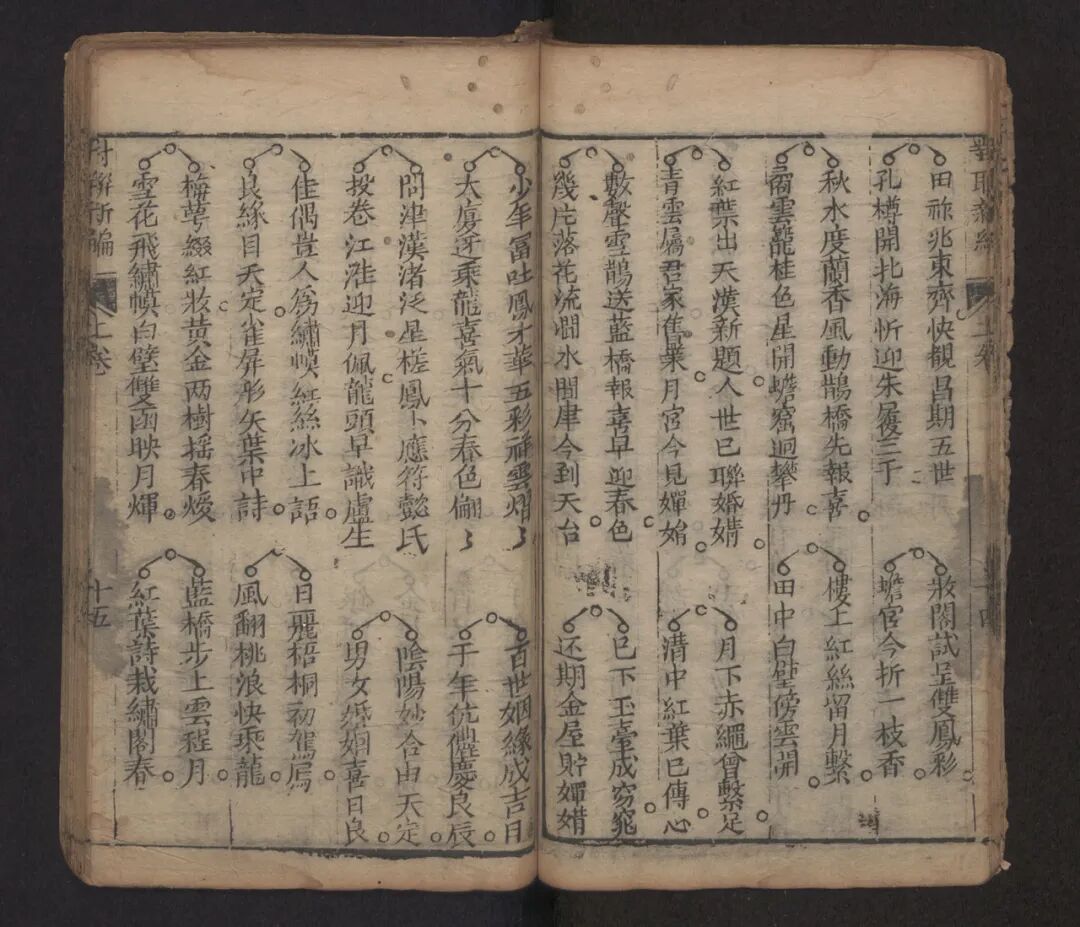 上卷
田祚兆東齊快覩昌期五世
妝閣試呈雙鳳彩
孔樽開北海忻迎朱履三千
蟾宮今折一枝香
秋水度蘭香風動鵲橋先報喜
樓上紅絲留月繫
雲籠桂色星開蟾窟迥攀丹
田中白璧傍雲開
紅葉出天漢新題人世已聯婚
月下赤繩曾繫足
青雲屬君家舊業月宮今見嬋
溝中紅葉已傳心
數聲雪鵲送藍橋報喜早迎春色
已下玉臺成窈窕
幾片落花流澗水問津今到天台
还期金屋貯嬋
少年富吐鳳才華五彩祥雲熠〻
百世姻緣成吉月
大廈逆乘龍喜氣十分春色翩〻
千年伉儷慶良辰
問津漢渚泛星槎鳳卜應符懿氏
陰陽妙合由天定
投卷江淮迎月佩龍頭早識盧生
男女婚姻喜日良
佳偶豈人為繡幙紅絲冰上語
日麗梧桐初駕鳳
良緣自天定雀屏彤矢葉中詩
風翻桃浪快乘龍
梅萼綴紅妝黃金两樹搖春煖
藍橋步上雲程月
雪花飛繡幙白璧雙函映月輝
紅葉詩裁繡閣春
上卷
十五